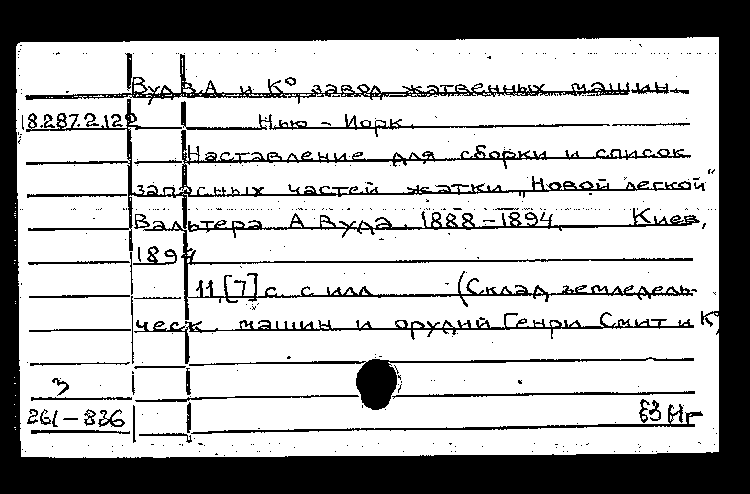 Вуд В.А. и К°, завод жатвенных машин.
18.287.2.122 Нью-Йорк.
Наставление для сборки и список
запасных частей жатки „Новой легкой“
Вальтера А Вуда. 1888-1894. Киев,
1894
11,[7] с. с илл. (Склад земледель-
ческ. машин и орудий Генри Смит и К°)
З
261-836